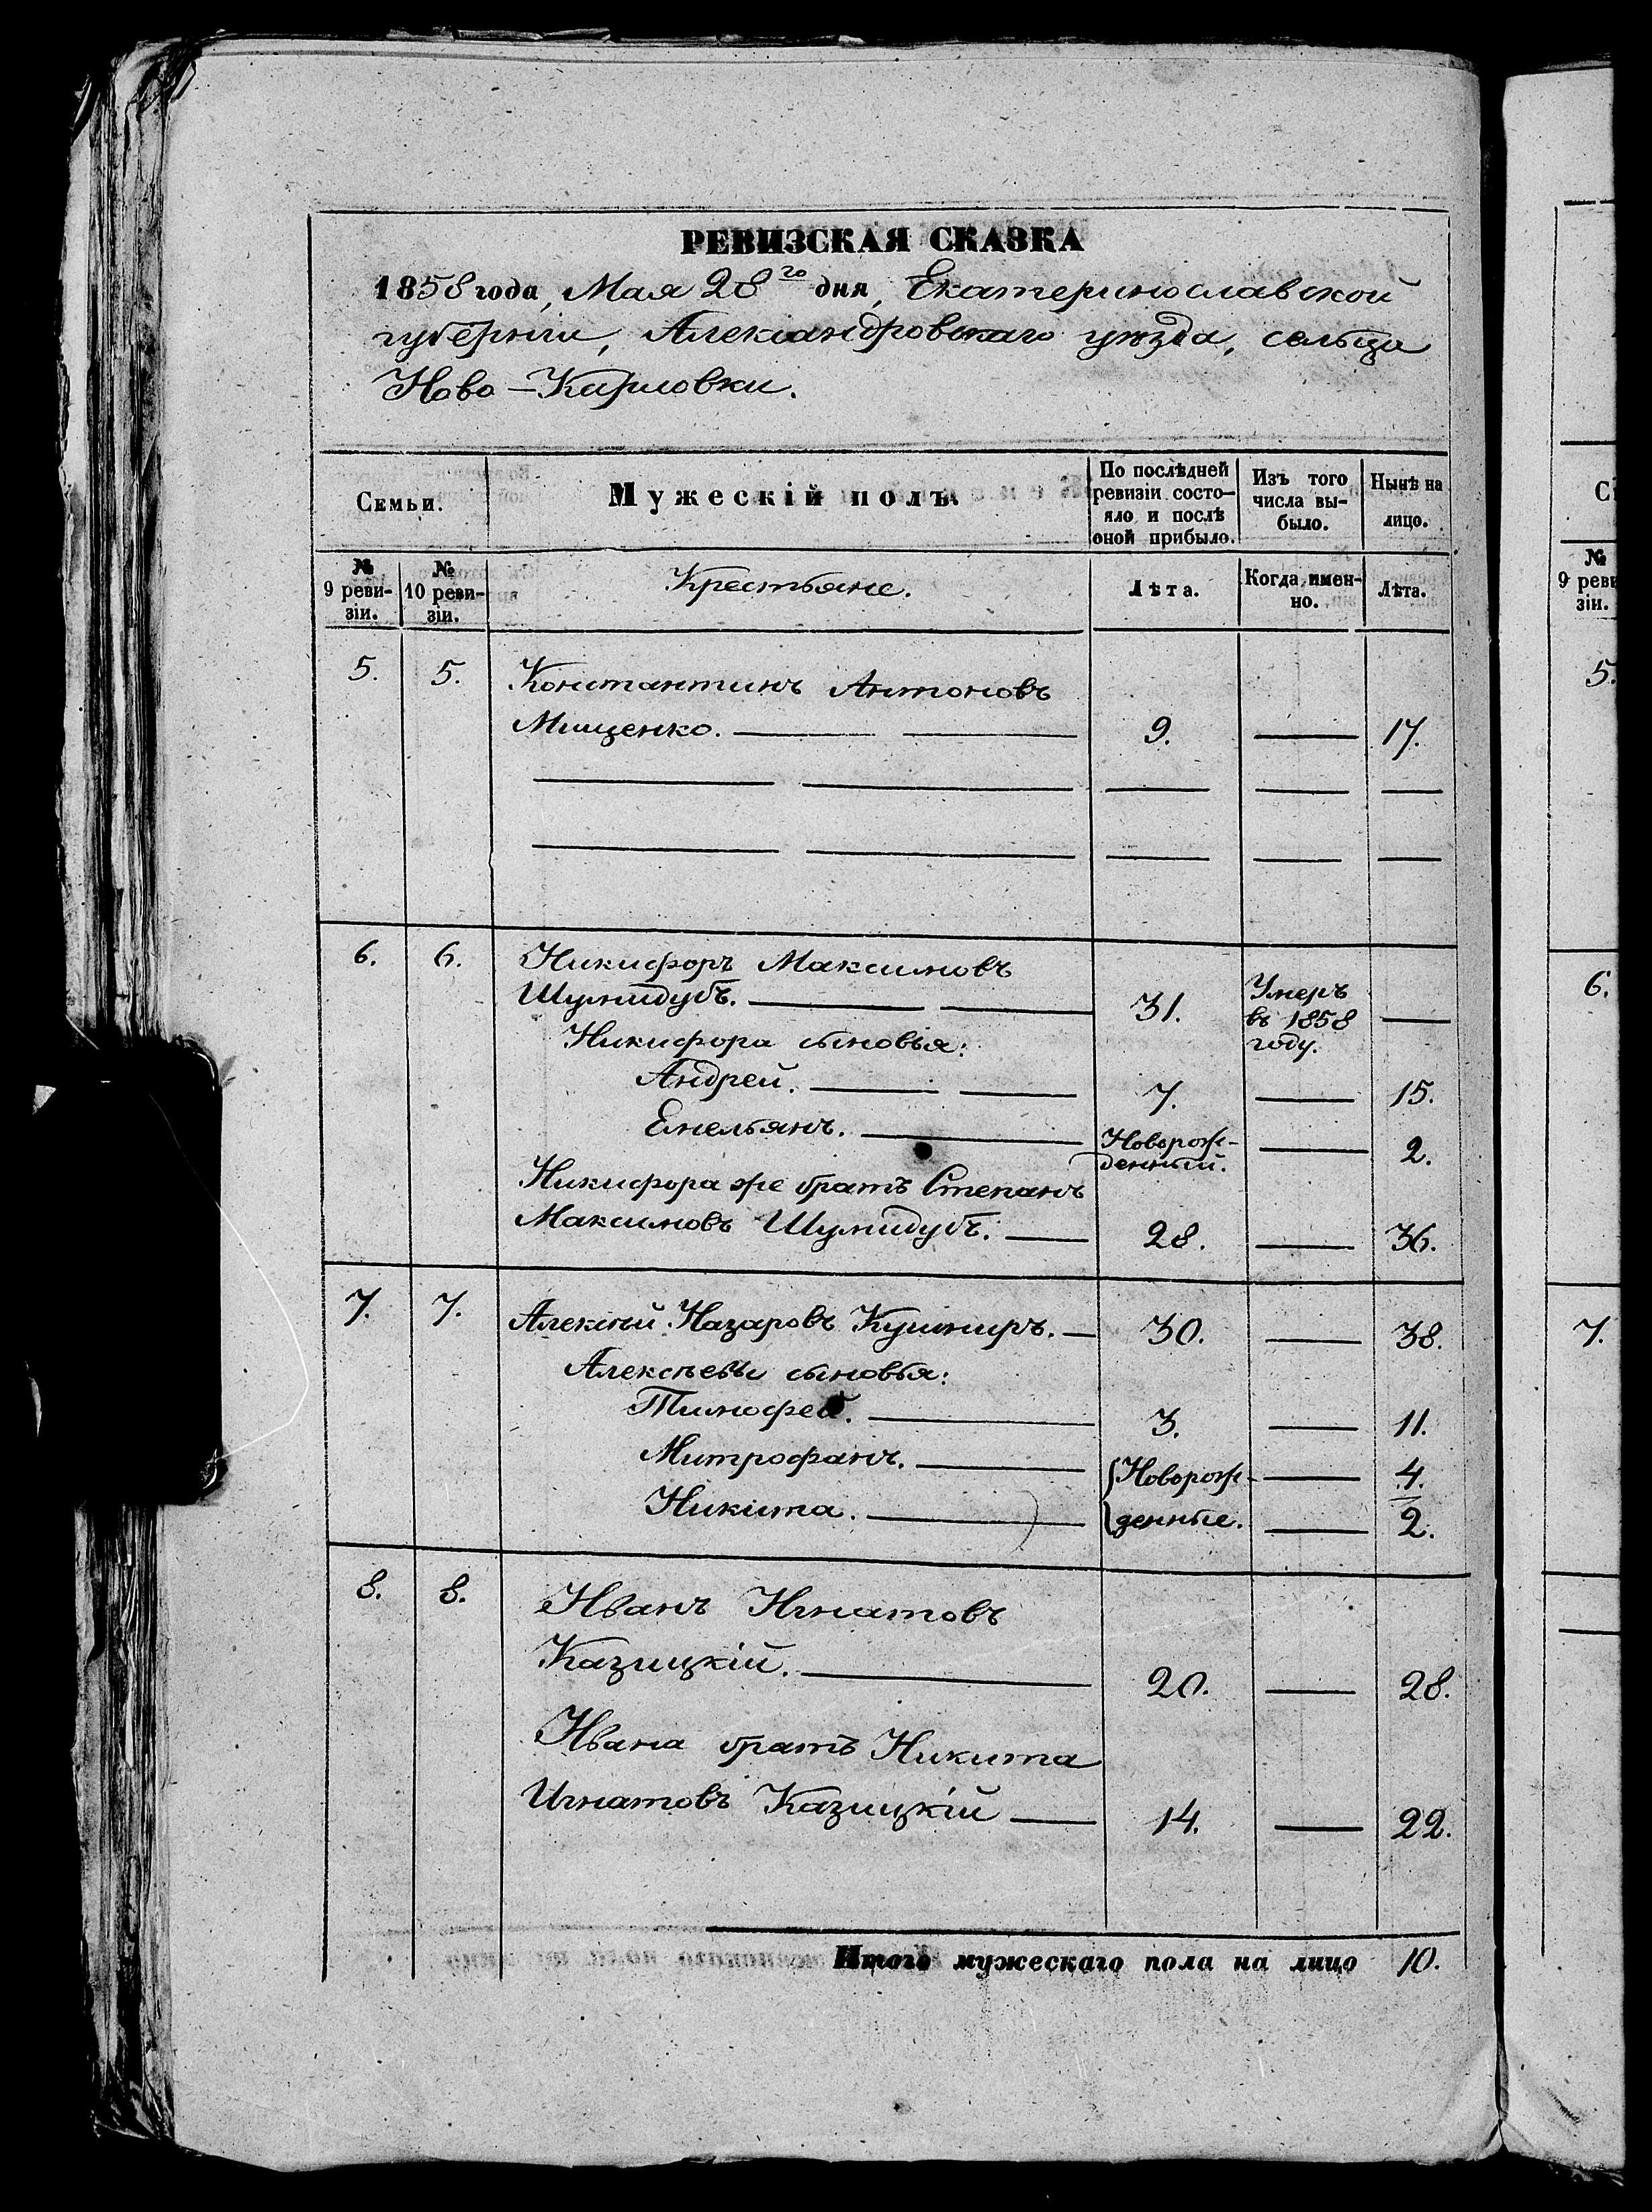 РЕВИЗСКАЯ СКАЗКА
1858 года, Мая 28го дня, Екатеринославской
губерніи, Александровскаго уѣзда, сельца
Ново-Карловки.
Семьи.
Мужескій полъ.
По послѣдней ревизіи состояло и послѣ оной прибыло.
Изъ того числа выбыло.
Нынѣ на лицо.
№ 9 ревизіи.
№ 10 ревизіи.
Крестьяне.
Лѣта.
Когда именно.
Лѣта.
5. 5. Константинъ Антоновъ
Мищенко. — — 9. — 17.
6. 6. Никифоръ Максимовъ
Шумидубъ. — — 31. Умеръ въ 1858 году. —
Никифора сыновья:
Андрей. — — 7. — 15.
Емельянъ. — Новорожденный. — 2.
Никифора же братъ Степанъ
Максимовъ Шумидубъ. — 28. — 36.
7. 7. Алексѣй Назаровъ Кушниръ. — 30. — 38.
Алексѣевы сыновья:
Тимофей. — 3. — 11.
Митрофанъ. — {Новорож- — 4.
Никита. — денные. — 2.
8. 8. Иванъ Игнатовъ
Казицкій. — 20. — 28.
Ивана братъ Никита
Игнатовъ Казицкій — 14. — 22.
Итого мужескаго пола на лицо 10.
С
№
9 реви
зіи.
5.
6.
7.